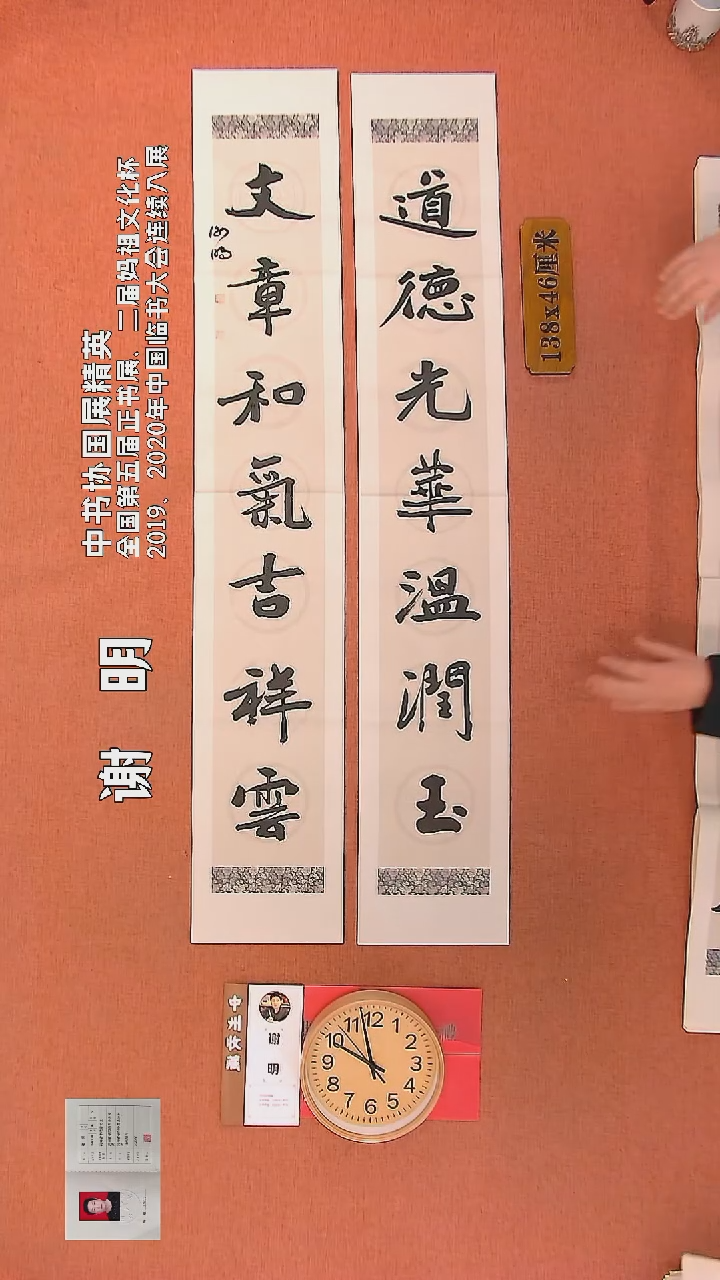 道德光華溫潤玉
文章和氣吉祥雲
谢明
138x46厘米
中书协国展精英
全国第五届正书展、二届妈祖文化杯
2019、2020年中国临书大会连续入展
谢 明
谢明
12
1
2
3
4
5
6
7
8
9
10
11